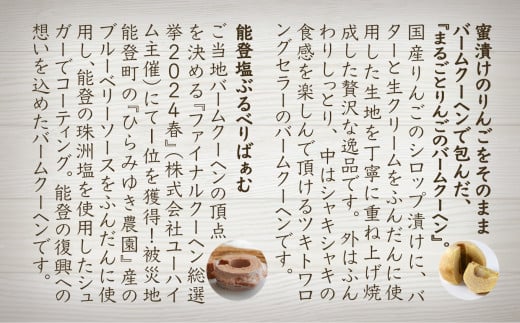 蜜漬けのりんごをそのまま
バームクーヘンで包んだ、
『まるごとりんごのバームクーヘン』。
国産りんごのシロップ漬けに、バ
ターと生クリームをふんだんに使
用した生地を丁寧に重ね上げ焼
成した贅沢な逸品です。外はふん
わりしっとり、中はシャキシャキの
食感を楽しんで頂けるツキトワロ
ングセラーのバームクーヘンです。
能登塩ぶるべりばぁむ
ご当地バームクーヘンの頂点
を決める『ファイナルクーヘン総選
挙2024春』(株式会社ユーハイ
ム主催)にて一位を獲得!被災地
能登町の『ひらみゆき農園』産の
ブルーベリーソースをふんだんに使
用し、能登の珠洲塩を使用したシュ
ガーでコーティング。能登の復興への
想いを込めたバームクーヘンです。